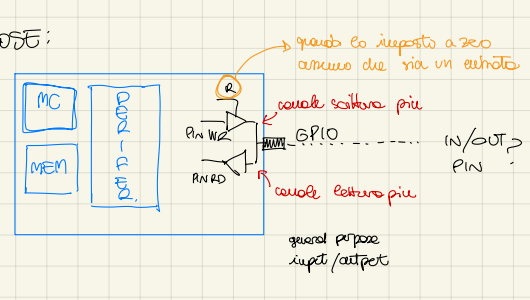 OSE:
quando lo imposto a zero
assumo che sia un entrata
R
MC
PERIFER.
canale scrittura pin
PIN WR
GPIO
IN/OUT?
PIN
MEM
PIN RD
canale lettura pin
general purpose
input/output